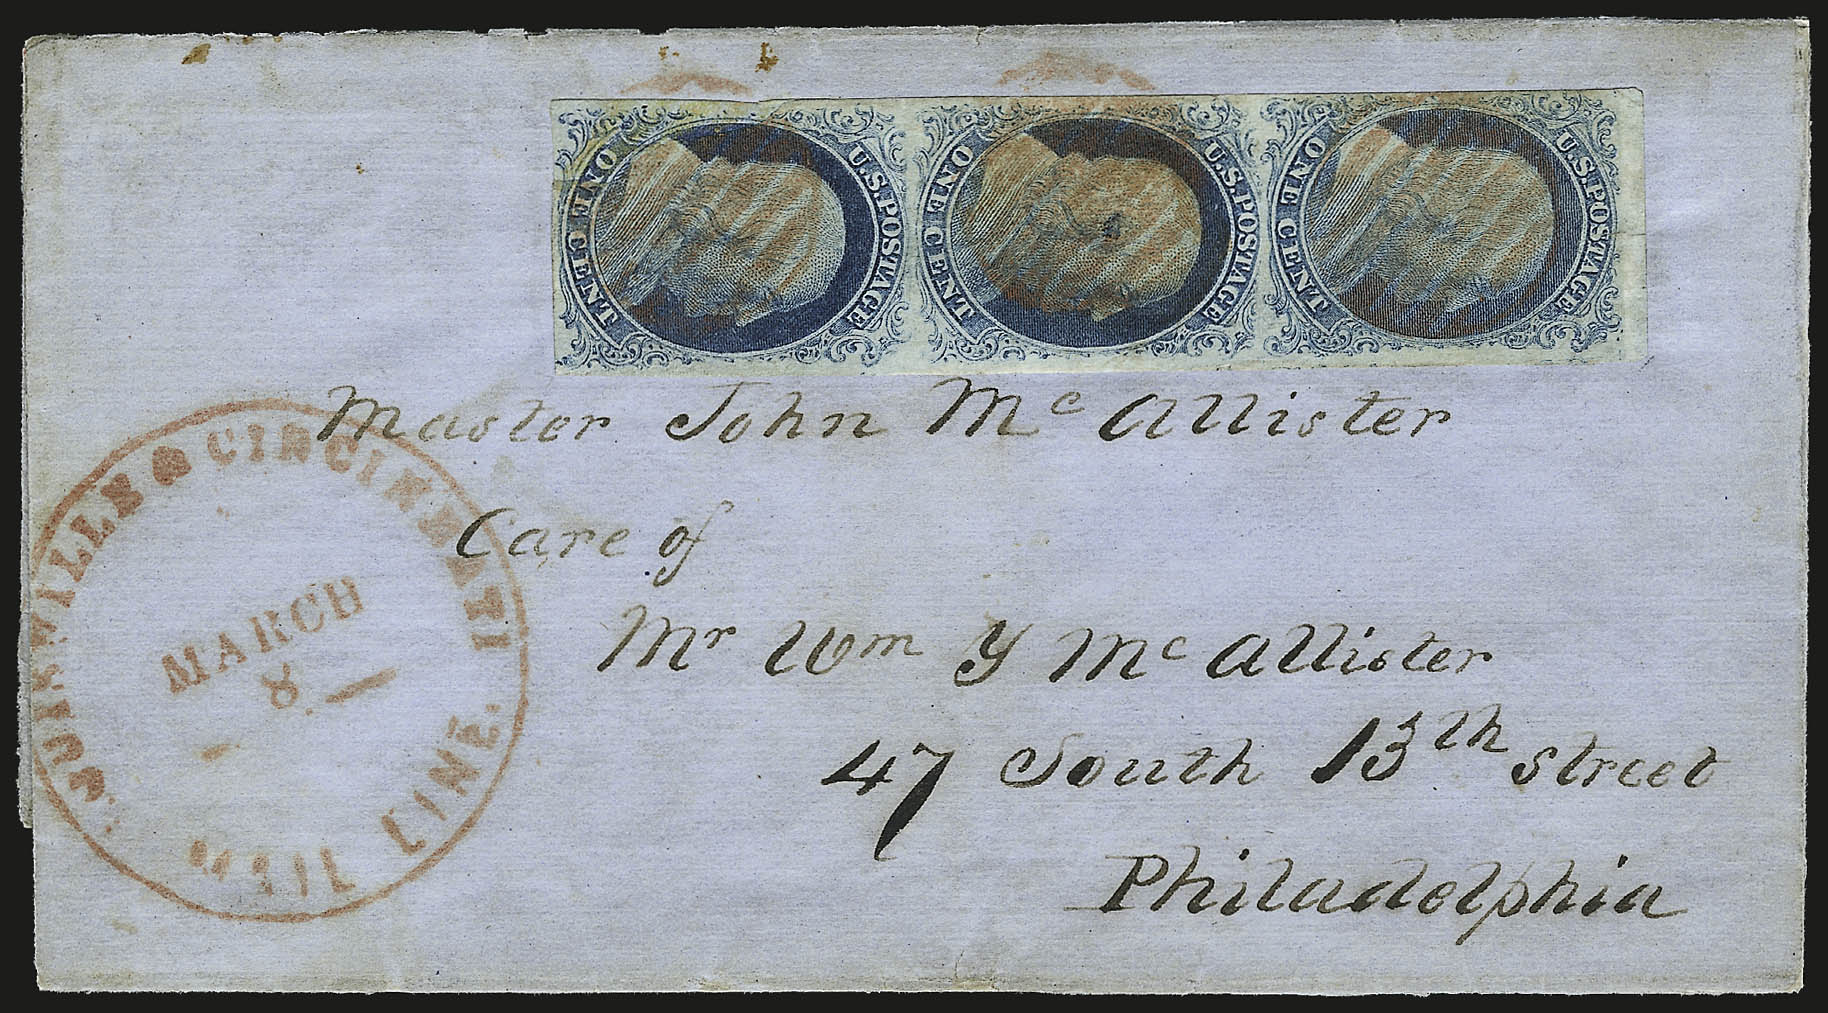 U.S. POSTAGE U.S. POSTAGE U.S. POSTAGE
ONE CENT ONE CENT ONE CENT
Master John Mc Allister
Care of
Mr Wm Y Mc Allister
47 South 13th street
Philadelphia
LOUISVILLE & CINCINNATI
MARCH
8
MAIL LINE.